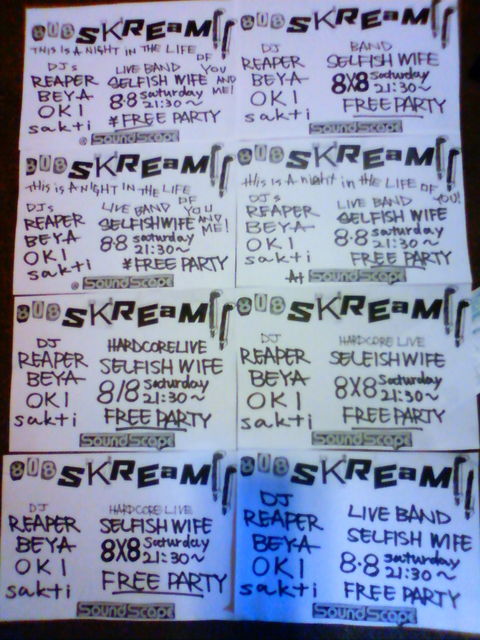 808 SKREAM!!
THIS IS A NIGHT IN THE LIFE OF YOU AND ME!
DJs
REAPER
BEYA
OKI
sakti
LIVE BAND
SELFISH WIFE
8·8 saturday
21:30~
¥FREE PARTY
@ SoundScape
808 SKREAM!!
DJ
REAPER
BEYA
OKI
sakti
BAND
SELFISH WIFE
8X8 saturday
21:30~
FREE PARTY
SoundScape
808 SKREAM!!
THIS IS A NIGHT IN THE LIFE OF YOU AND ME!
DJs
REAPER
BEYA
OKI
sakti
LIVE BAND
SELFISH WIFE
8·8 saturday
21:30~
¥FREE PARTY
@ SoundScape
808 SKREAM!!
this is A night in the LIFE OF YOU!
DJs
REAPER
BEYA
OKI
sakti
LIVE BAND
SELFISH WIFE
8·8 saturday
21:30~
FREE PARTY
At SoundScape
808 SKREAM!!
DJ
REAPER
BEYA
OKI
sakti
HARDCORE LIVE
SELFISH WIFE
8/8 saturday
21:30~
FREE PARTY
SoundScape
808 SKREAM!!
DJ
REAPER
BEYA
OKI
sakti
HARDCORE LIVE
SELFISH WIFE
8X8 saturday
21:30~
FREE PARTY
SoundScape
808 SKREAM!!
DJ
REAPER
BEYA
OKI
sakti
HARDCORE LIVE
SELFISH WIFE
8X8 saturday
21:30~
FREE PARTY
SoundScape
808 SKREAM!!
DJ
REAPER
BEYA
OKI
sakti
LIVE BAND
SELFISH WIFE
8·8 saturday
21:30~
FREE PARTY
SoundScape